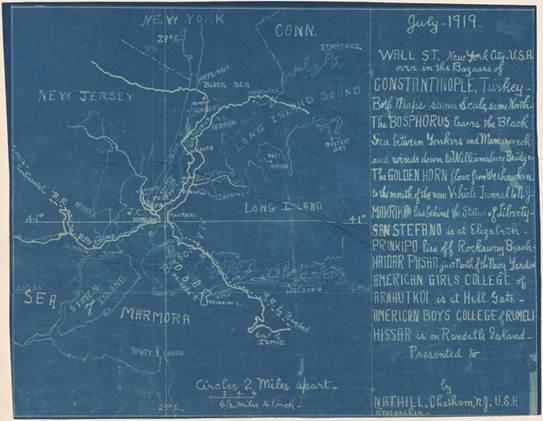 July-1919.
WALL ST. New York City-U.S.A
over in the Bazaars of
CONSTANTINOPLE, Turkey-
Both Maps same Scale, same North-
The BOSPHORUS leaves the Black
Sea between Yonkers and Mamaroneck
and winds down to Williamsburg Bridge-
The GOLDEN HORN flows from Weehawken
to the mouth of the new Vehicle Tunnel to N.J.-
MAKRIKOI lies behind the Statue of Liberty-
SAN STEFANO is at Elizabeth-
PRINKIPO lies off Rockaway Beach-
HAIDAR PASHA just North of the Navy Yard
AMERICAN GIRLS COLLEGE of
ARNAUTKOI is at Hell Gate-
AMERICAN BOYS COLLEGE of RUMELI
HISSAR is on Randalls Island-
Presented to
by
NAT HILL, Chatham, N.J., U.S.A.
Researcher-
NEW YORK
29°E.
CONN.
STAMFORD
HASTINGS
BLACK SEA
NEW JERSEY
LONG ISLAND SOUND
OYSTER
BAY
LONG ISLAND
41°
41°
SEA
OF
MARMORA
STATEN
ISLAND
SANDY HOOK
Gulf of
ISMID
Circles 2 Miles apart-
6½ miles to 1 inch-
29°E.